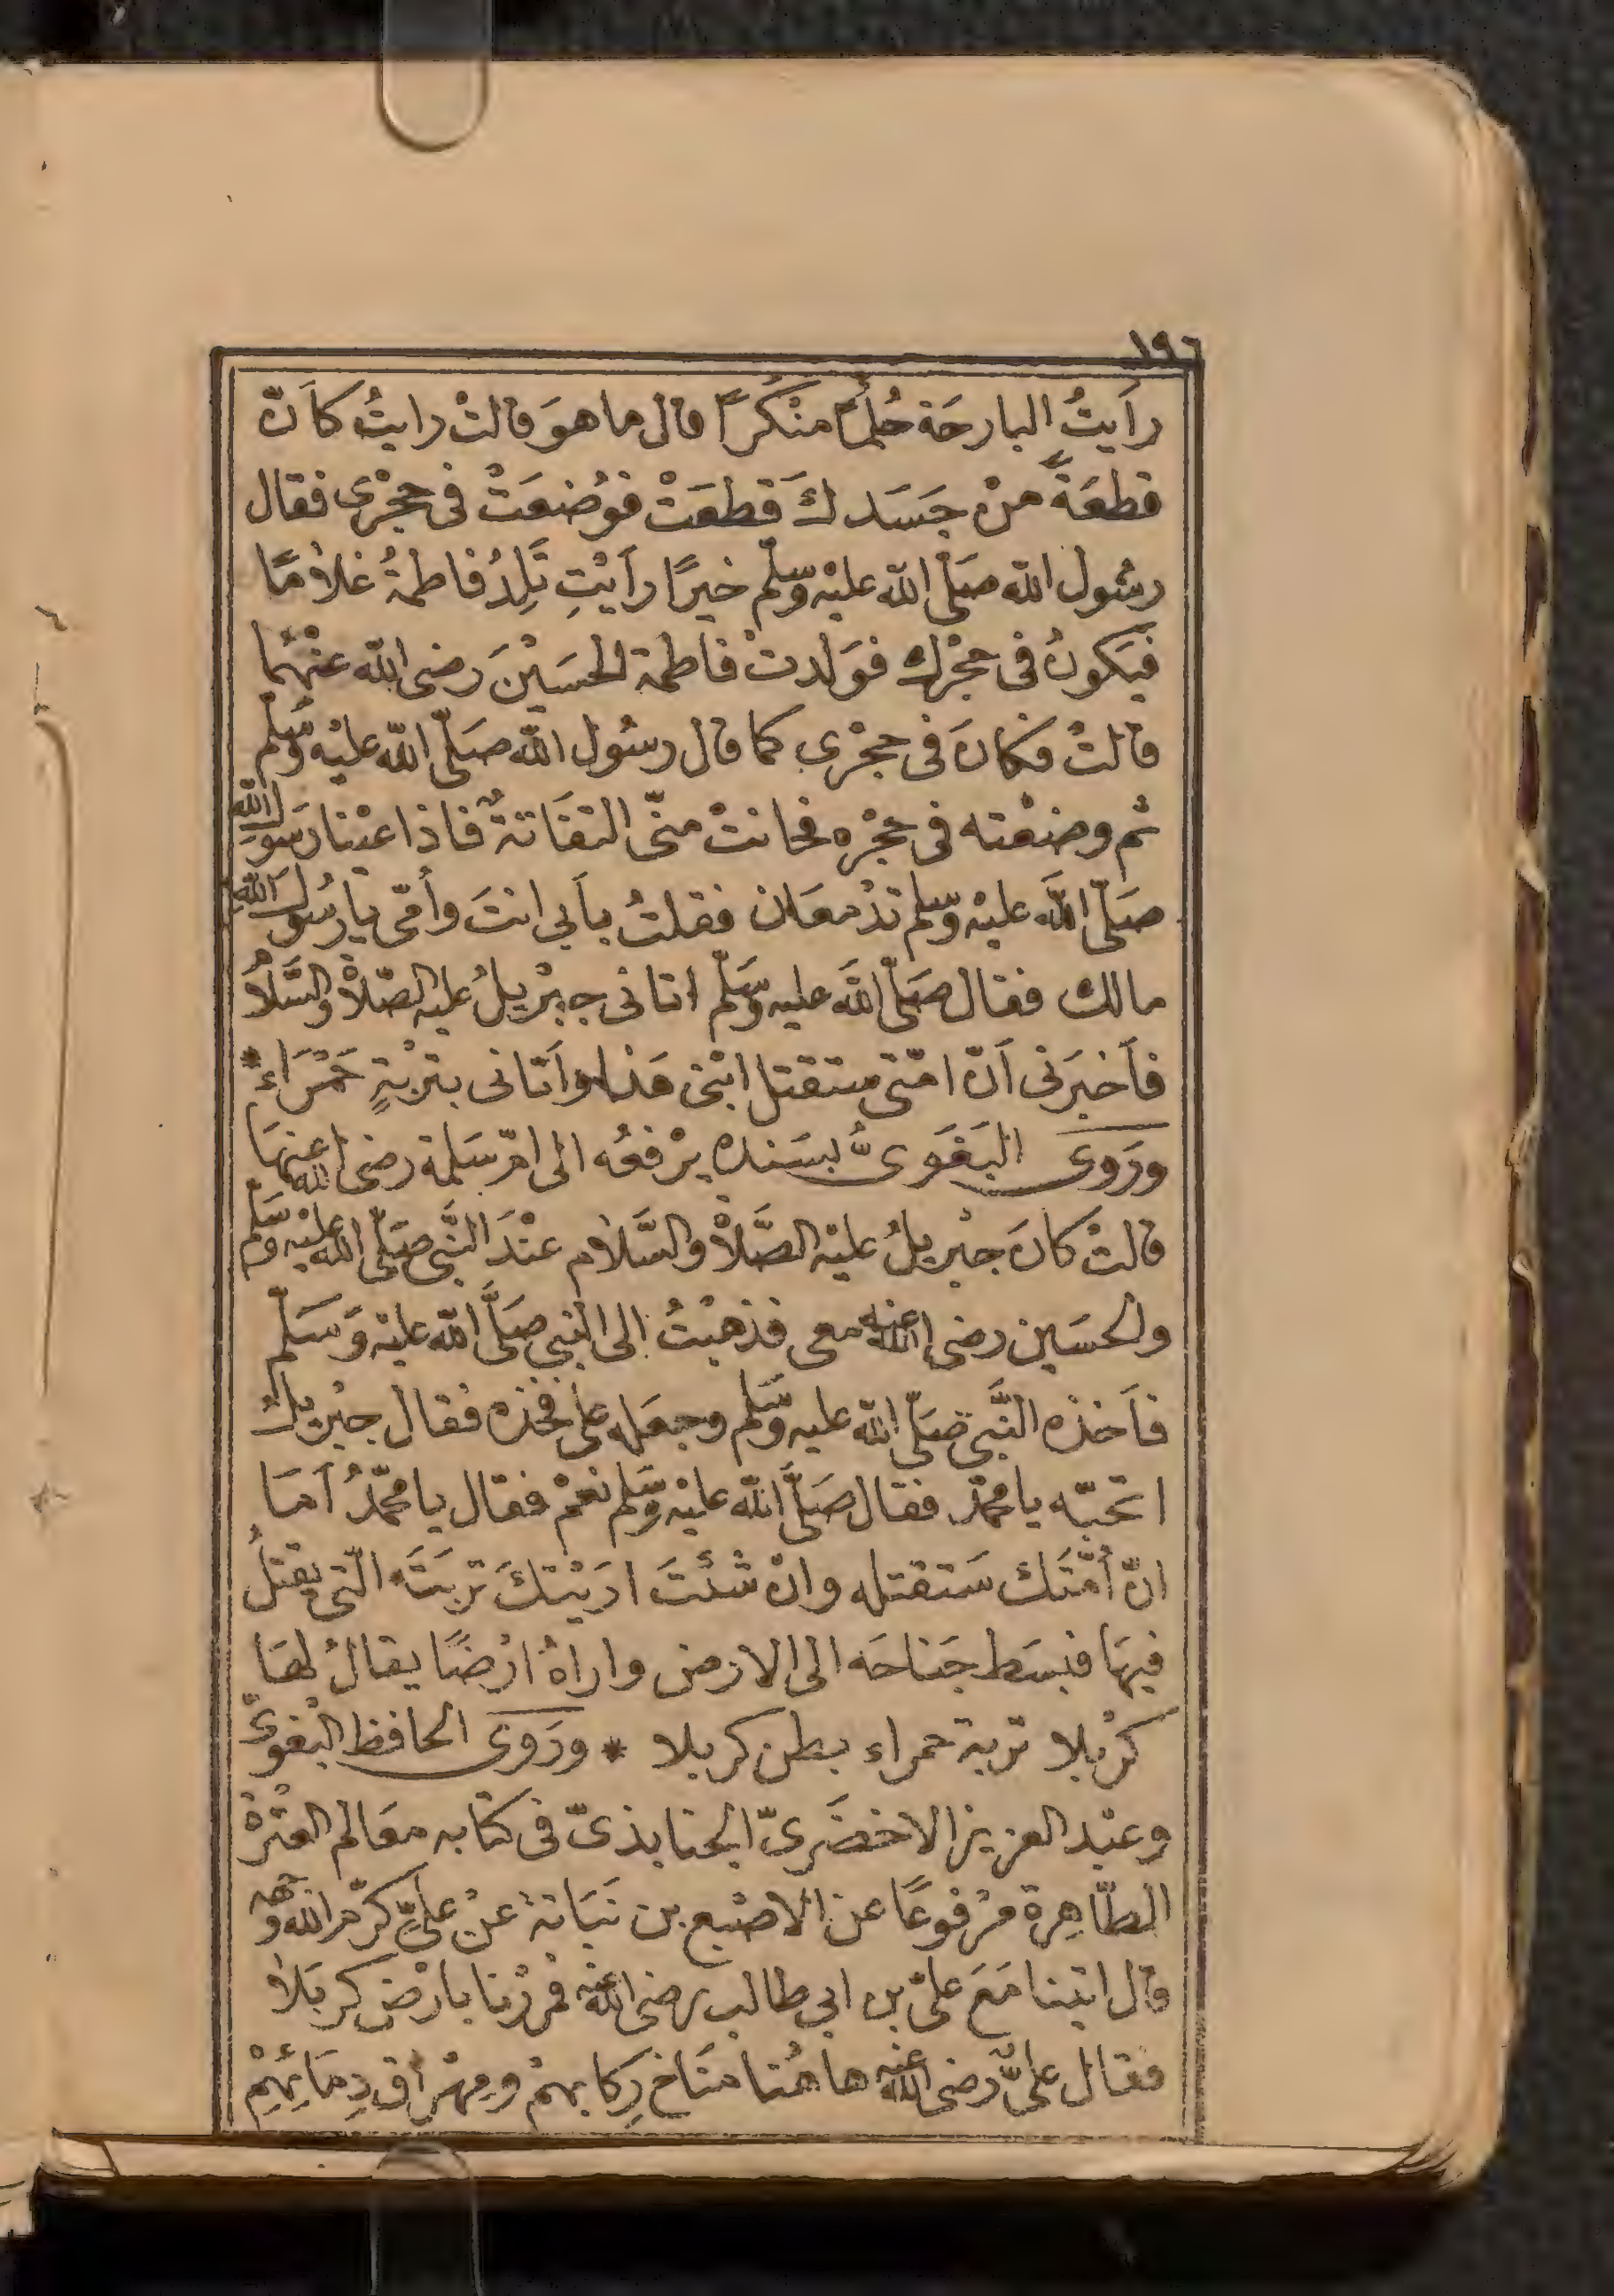 ١٩٦
رأَيتُ البارحَة حُلمًا منْكَرًا قال ما هوَ قالتْ رايتُ كاَنّ
قطعَةً منْ جَسَدكَ قطعَتْ فوُضعَتْ فى حِجْرى فقال
رسُول الله صَلّى الله عليْه وسلّم خيرًا رأَيْتِ تَلِدُ فاطمةُ غلامًا
فيَكونُ فى حجْرك فوَلدتْ فاطمة الحسَيْنَ رضى الله عنْهُما
قالتْ فكانَ فى حجْرى كما قال رسُول الله صَلّى الله عليْه وسَلّم
ثم وضعْته فى حجْره فحانتْ منّى التفَاتةٌ فاذا عيْنا رَسول الله
صَلّى الله عليْه وسلّم تدْمعَان فقلتُ بأبى انتَ وأمّى يا رسُولَ اللهِ
مالك فقال صَلّى الله عليه وسَلّم اتانى جبْريلُ عليه الصّلاةُ والسَّلامُ
فأخبرَنى أنّ امّتى ستقتل ابْنى هَذا وأتانى بتربْةٍ حَمْرَاء *
ورَوى البَغَوىُّ بسَنده يرْفعُه الى امّ سَلمة رضى الله عنهَا
قالتْ كانَ جبْريلُ عليْه الصَّلاةُ والسَّلام عنْدَ النَّبى صَلّى الله عليْه وسَلّم
والحسَين رضى الله عنه معى فذهبْتُ الى النبى صَلَّى الله عليْه وَسَلّم
فأخذه النَّبى صَلّى الله عليه وسَلم وجعَله على فخذه فقال جبْريلُ
اتحبّه يا محمّدُ فقال صَلَّى الله عليْه وسَلم نعَمْ فقال يا محمّدُ أمَا
انّ أمّتَك سَتقتله وانْ شئْتَ ارَيْتكَ تربَتَه الّتى يقْتلُ
فيهَا فبسَط جَناحَه الى الارْض واراهُ ارْضًا يقالُ لهَا
كرْبلا تربة حمراء بطن كربلا * ورَوى الحافظ البَغوىّ
وعبْد العزيز الاخضَرىّ الجنابذىّ فى كتابه معَالم العتْرة
الطّاهِرة مرْفوعًا عن الاصْبع بن نَبَاتة عنْ علىٍّ كرّم الله وجهه
قال اتيْنا مَعَ علىّ بن ابى طالب رضى الله عنه فمرْرْنا بارْض كربَلا
فقال علىٌّ رضى الله عنه هاهُنا مَنَاخ رِكابهمْ ومهْرَاق دِمَائِهِمْ